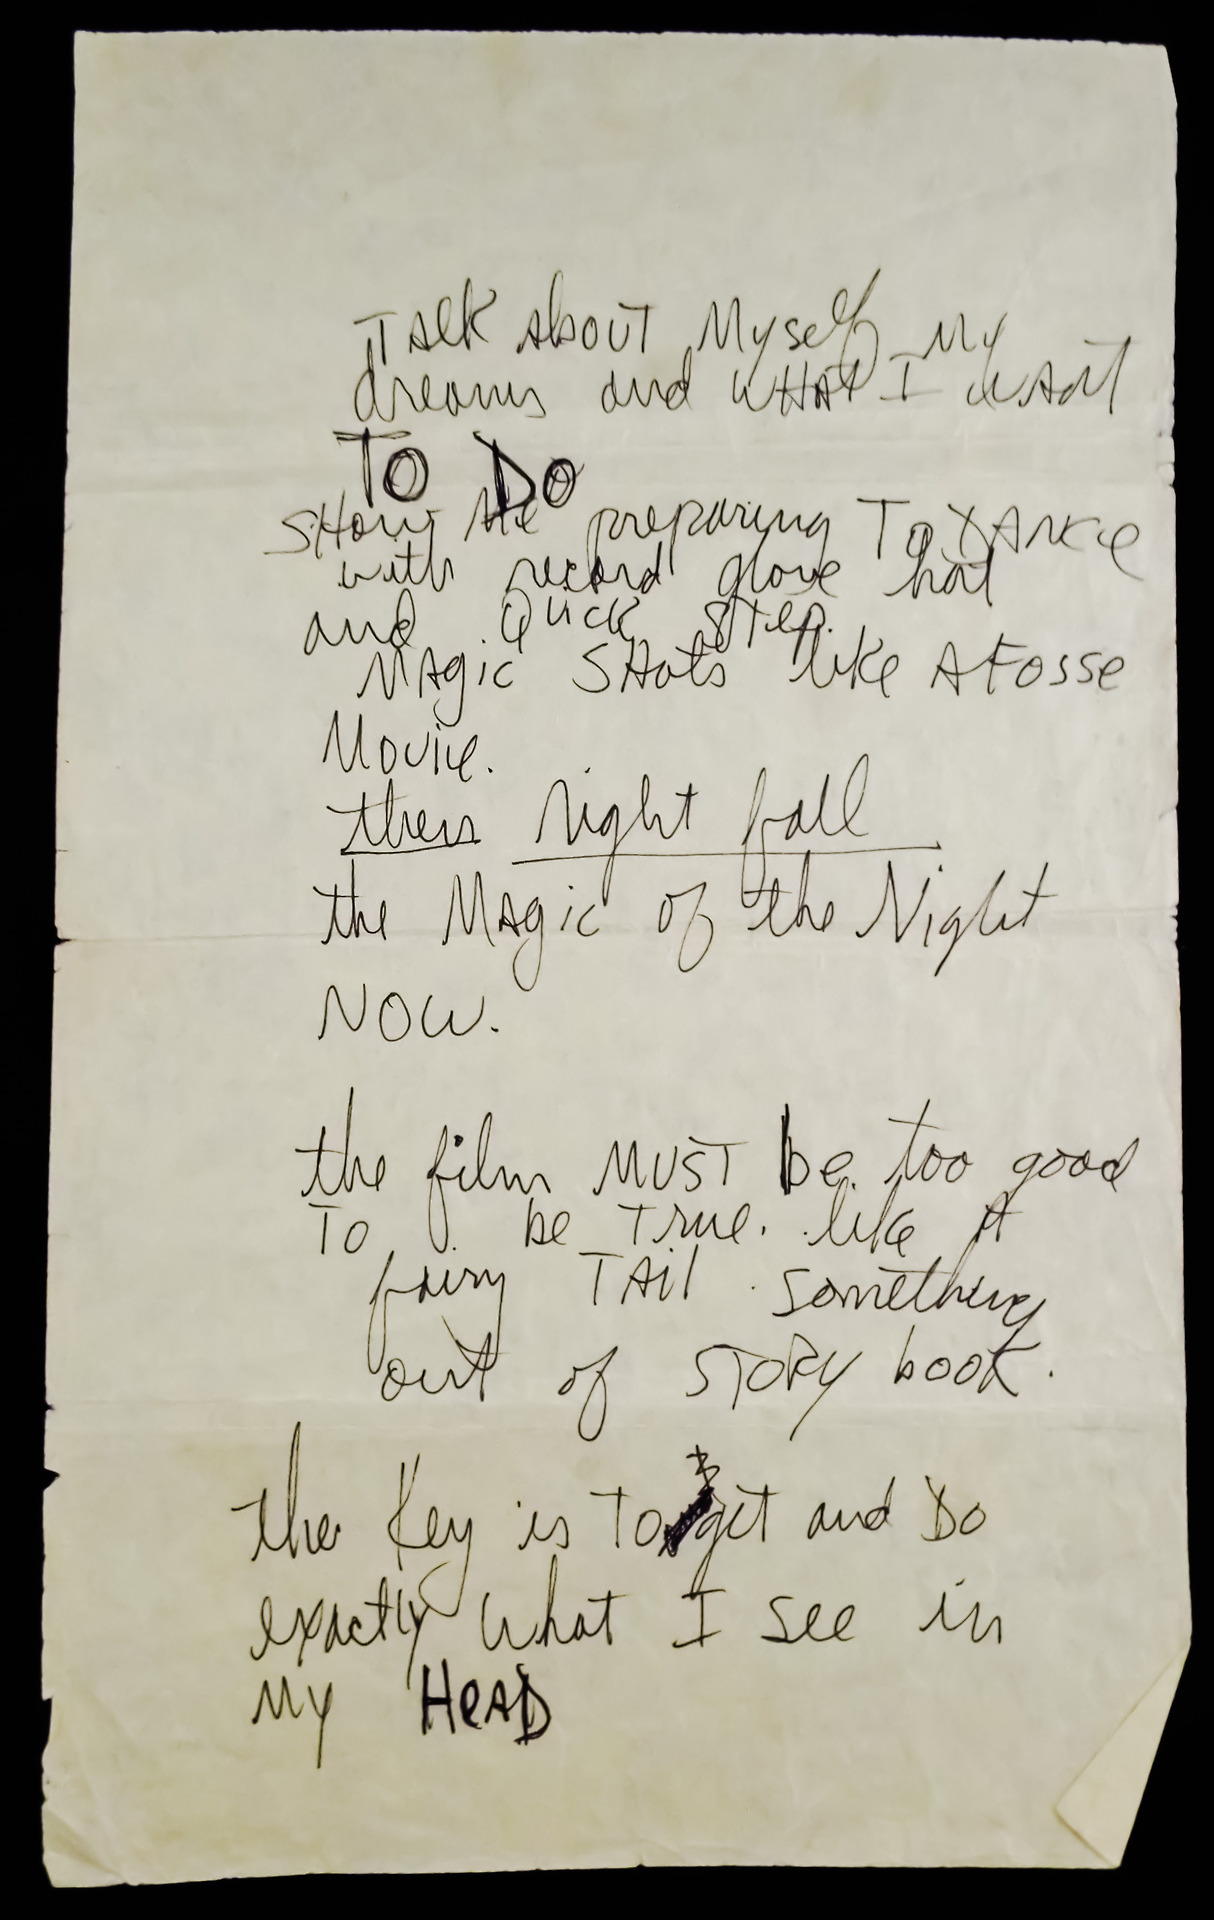 TAlk About Myself My
dreams and WHAt I WANT
TO DO
SHow Me preparing To DANCe
with record glove hat
and Quick Step.
MAgic SHots like A Fosse
Movie.
then Night fall
the MAgic of the Night
NOW.
the film MUST be too good
TO be True. like A
fairy TAil something
out of STORy book.
the Key is To get and Do
exactly what I see in
My HeAD